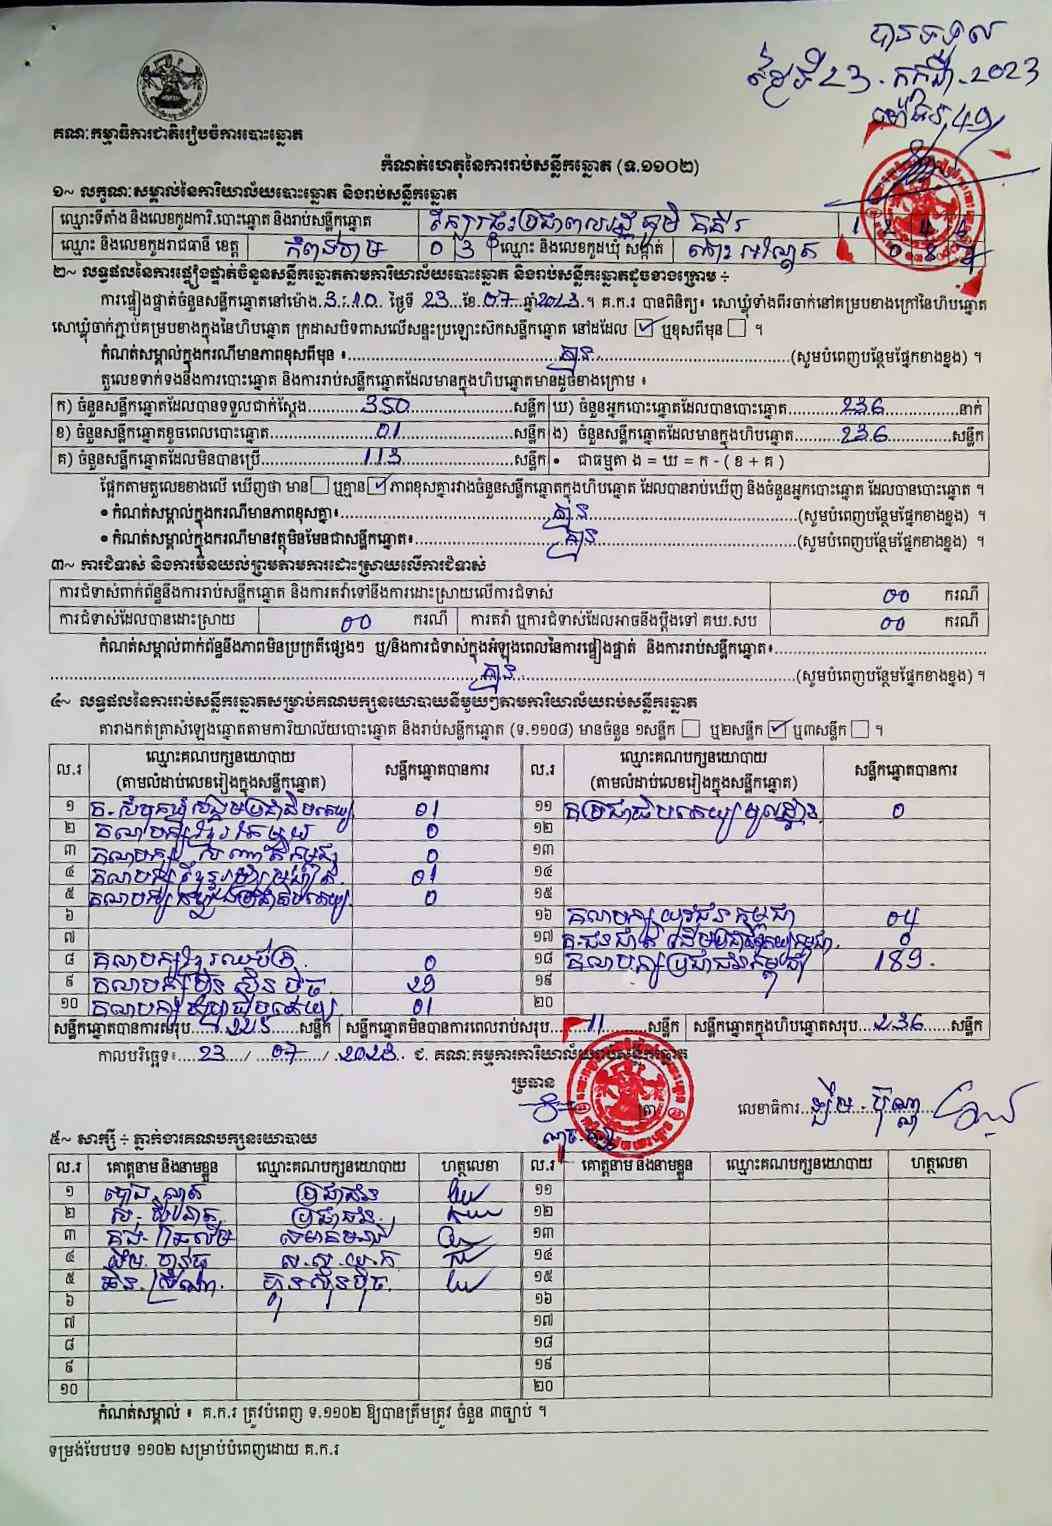 បានទទួល
ថ្ងៃទី 23 . កក្កដា . 2023
ម៉ោង
គណៈកម្មាធិការជាតិរៀបចំការបោះឆ្នោត
កំណត់ហេតុនៃការរាប់សន្លឹកឆ្នោត (ទ.១១០២)
១~ លក្ខណៈសម្គាល់នៃការិយាល័យបោះឆ្នោត និងរាប់សន្លឹកឆ្នោត
ឈ្មោះទីតាំង និងលេខកូដការិ.បោះឆ្នោត និងរាប់សន្លឹកឆ្នោត ផ្ទះប្រជាពលរដ្ឋ ភូមិ
ឈ្មោះ និងលេខកូដរាជធានី ខេត្ត កំពង់ចាម 0 3 ឈ្មោះ និងលេខកូដឃុំ សង្កាត់
២~ លទ្ធផលនៃការផ្ទៀងផ្ទាត់ចំនួនសន្លឹកឆ្នោតតាមការិយាល័យបោះឆ្នោត និងរាប់សន្លឹកឆ្នោតដូចខាងក្រោម ÷
ការផ្ទៀងផ្ទាត់ចំនួនសន្លឹកឆ្នោតនៅម៉ោង 3:10 ថ្ងៃទី 23 ខែ 07 ឆ្នាំ 2023 ។ គ.ក.រ បានពិនិត្យ៖ សោឃ្លុំទាំងពីរចាក់នៅគម្របខាងក្រៅនៃហិបឆ្នោត
សោឃ្លុំចាក់ភ្ជាប់គម្របខាងក្នុងនៃហិបឆ្នោត ក្រដាសបិទពាសលើសន្ទះប្រឡោះសិកសន្លឹកឆ្នោត នៅដដែល ☑ ឬខុសពីមុន ☐ ។
កំណត់សម្គាល់ក្នុងករណីមានភាពខុសពីមុន ៖ គ្មាន (សូមបំពេញបន្ថែមផ្នែកខាងខ្នង) ។
តួលេខទាក់ទងនឹងការបោះឆ្នោត និងការរាប់សន្លឹកឆ្នោតដែលមានក្នុងហិបឆ្នោតមានដូចខាងក្រោម ៖
ក) ចំនួនសន្លឹកឆ្នោតដែលបានទទួលជាក់ស្តែង 350 សន្លឹក ឃ) ចំនួនអ្នកបោះឆ្នោតដែលបានបោះឆ្នោត 236 នាក់
ខ) ចំនួនសន្លឹកឆ្នោតខូចពេលបោះឆ្នោត 01 សន្លឹក ង) ចំនួនសន្លឹកឆ្នោតដែលមានក្នុងហិបឆ្នោត 236 សន្លឹក
គ) ចំនួនសន្លឹកឆ្នោតដែលមិនបានប្រើ 113 សន្លឹក • ជាធម្មតា ង = ឃ = ក - ( ខ + គ )
ផ្អែកតាមតួលេខខាងលើ ឃើញថា មាន ☐ ឬគ្មាន ☑ ភាពខុសគ្នារវាងចំនួនសន្លឹកឆ្នោតក្នុងហិបឆ្នោត ដែលបានរាប់ឃើញ និងចំនួនអ្នកបោះឆ្នោត ដែលបានបោះឆ្នោត ។
• កំណត់សម្គាល់ក្នុងករណីមានភាពខុសគ្នា៖ គ្មាន (សូមបំពេញបន្ថែមផ្នែកខាងខ្នង) ។
• កំណត់សម្គាល់ក្នុងករណីមានវត្ថុមិនមែនជាសន្លឹកឆ្នោត៖ គ្មាន (សូមបំពេញបន្ថែមផ្នែកខាងខ្នង) ។
៣~ ការជំទាស់ និងការមិនយល់ព្រមតាមការដោះស្រាយលើការជំទាស់
ការជំទាស់ពាក់ព័ន្ធនឹងការរាប់សន្លឹកឆ្នោត និងការតវ៉ាទៅនឹងការដោះស្រាយលើការជំទាស់ 00 ករណី
ការជំទាស់ដែលបានដោះស្រាយ 00 ករណី ការតវ៉ា ឬការជំទាស់ដែលអាចនឹងប្តឹងទៅ គឃ.សប 00 ករណី
កំណត់សម្គាល់ពាក់ព័ន្ធនឹងភាពមិនប្រក្រតីផ្សេងៗ ឬ/និងការជំទាស់ក្នុងអំឡុងពេលនៃការផ្ទៀងផ្ទាត់ និងការរាប់សន្លឹកឆ្នោត៖
គ្មាន (សូមបំពេញបន្ថែមផ្នែកខាងខ្នង) ។
៤~ លទ្ធផលនៃការរាប់សន្លឹកឆ្នោតសម្រាប់គណបក្សនយោបាយនីមួយៗតាមការិយាល័យរាប់សន្លឹកឆ្នោត
តារាងកត់ត្រាសំឡេងឆ្នោតតាមការិយាល័យបោះឆ្នោត និងរាប់សន្លឹកឆ្នោត (ទ.១១០៨) មានចំនួន ១សន្លឹក ☐ ឬ២សន្លឹក ☑ ឬ៣សន្លឹក ☐ ។
ល.រ ឈ្មោះគណបក្សនយោបាយ (តាមលំដាប់លេខរៀងក្នុងសន្លឹកឆ្នោត) សន្លឹកឆ្នោតបានការ ល.រ ឈ្មោះគណបក្សនយោបាយ (តាមលំដាប់លេខរៀងក្នុងសន្លឹកឆ្នោត) សន្លឹកឆ្នោតបានការ
១ គ. សំបុកឃ្មុំសង្គមប្រជាធិបតេយ្យ 01 ១១ គ ប្រជាធិបតេយ្យមូលដ្ឋាន 0
២ គណបក្សខ្មែររួបរួម 0 ១២
៣ គណបក្ស សញ្ជាតិកម្ពុជា 0 ១៣
៤ គណបក្ស 01 ១៤
៥ គណបក្ស ប្រជាធិបតេយ្យ 0 ១៥
៦ ១៦ គណបក្ស យុវជនកម្ពុជា 04
៧ ១៧ 0
៨ គណបក្សខ្មែរឈប់ក្រ 0 ១៨ គណបក្សប្រជាជនកម្ពុជា 189
៩ គណបក្សហ៊្វុនស៊ិនប៉ិច 29 ១៩
១០ គណបក្ស 01 ២០
សន្លឹកឆ្នោតបានការសរុប 225 សន្លឹក សន្លឹកឆ្នោតមិនបានការពេលរាប់សរុប 11 សន្លឹក សន្លឹកឆ្នោតក្នុងហិបឆ្នោតសរុប 236 សន្លឹក
កាលបរិច្ឆេទ៖ 23 / 07 / 2023 ជ. គណៈកម្មការការិយាល័យរាប់សន្លឹកឆ្នោត
ប្រធាន
ត្រា លេខាធិការ
៥~ សាក្សី ÷ ភ្នាក់ងារគណបក្សនយោបាយ
ល.រ គោត្តនាម និងនាមខ្លួន ឈ្មោះគណបក្សនយោបាយ ហត្ថលេខា ល.រ គោត្តនាម និងនាមខ្លួន ឈ្មោះគណបក្សនយោបាយ ហត្ថលេខា
១ ប្រជាជន ១១
២ ប្រជាជន ១២
៣ ១៣
៤ ស.ស.យ.ក ១៤
៥ ហ្វ៊ុនស៊ិនប៉ិច ១៥
៦ ១៦
៧ ១៧
៨ ១៨
៩ ១៩
១០ ២០
កំណត់សម្គាល់ ៖ គ.ក.រ ត្រូវបំពេញ ទ.១១០២ ឱ្យបានត្រឹមត្រូវ ចំនួន ៣ច្បាប់ ។
ទម្រង់បែបបទ ១១០២ សម្រាប់បំពេញដោយ គ.ក.រ